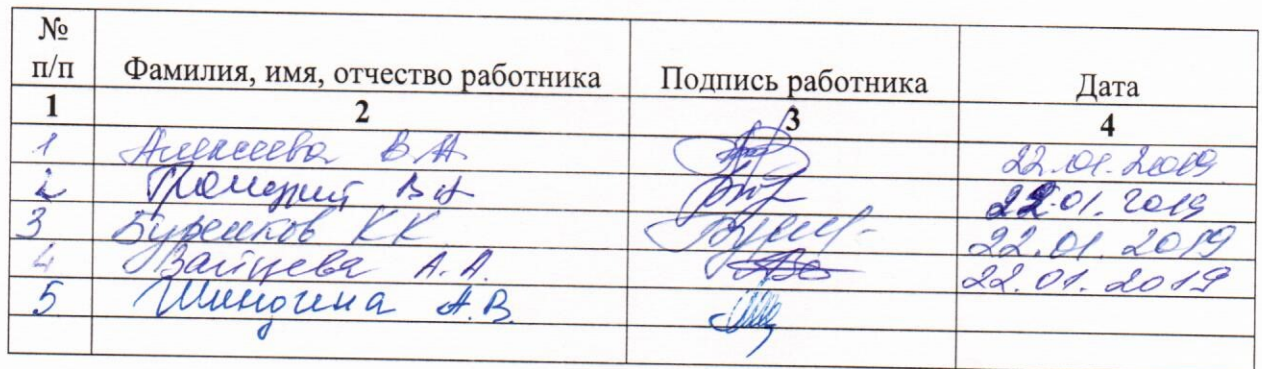 № п/п Фамилия, имя, отчество работника Подпись работника Дата
1 2 3 4
1 Алексеева В А 22.01.2019
2 В А 22.01.2019
3 Буренков К К 22.01.2019
4 Зайцева А.А. 22.01.2019
5 А.В.